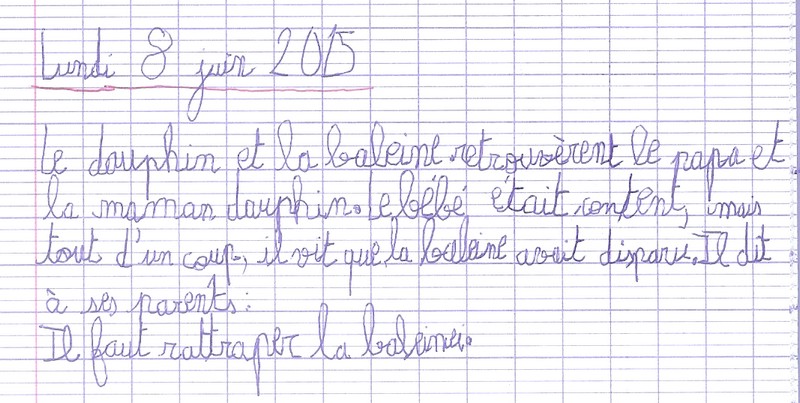 Lundi 8 juin 2015
Le dauphin et la baleine retrouvèrent le papa et
la maman dauphin. Le bébé était content, mais
tout d'un coup, il vit que la baleine avait disparu. Il dit
à ses parents :
Il faut rattraper la baleine.